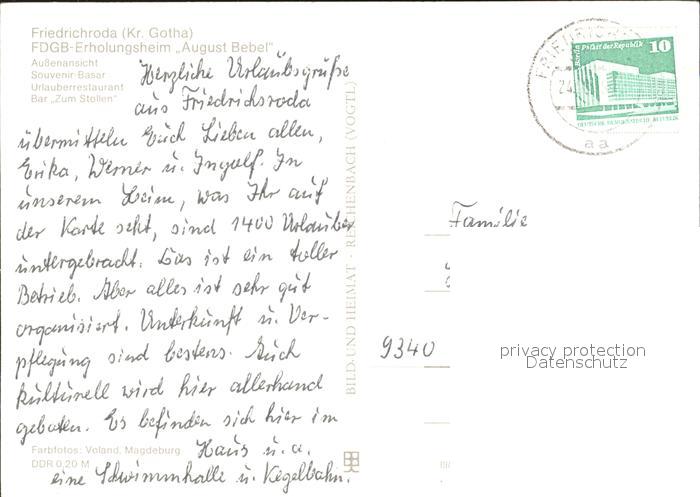 Friedrichroda (Kr. Gotha)
FDGB-Erholungsheim „August Bebel"
Außenansicht
Souvenir-Basar
Urlauberrestaurant
Bar „Zum Stollen"
Herzliche Urlaubsgrüße
aus Friedrichsroda
übermitteln Euch Lieben allen,
Erika, Werner u. Ingolf. In
unserem Heim, was Ihr auf
der Karte seht, sind 1400 Urlauber
untergebracht. Das ist ein toller
Betrieb. Aber alles ist sehr gut
organisiert. Unterkunft u. Ver-
pflegung sind bestens. Auch
kulturell wird hier allerhand
geboten. Es befinden sich hier im
Haus u. a.
eine Schwimmhalle u. Kegelbahn.
Farbfotos: Voland, Magdeburg
DDR 0,20 M
BILD UND HEIMAT · REICHENBACH (VOGTL)
Berlin Palast der Republik 10
DEUTSCHE DEMOKRATISCHE REPUBLIK
aa
Familie
9340
privacy protection
Datenschutz